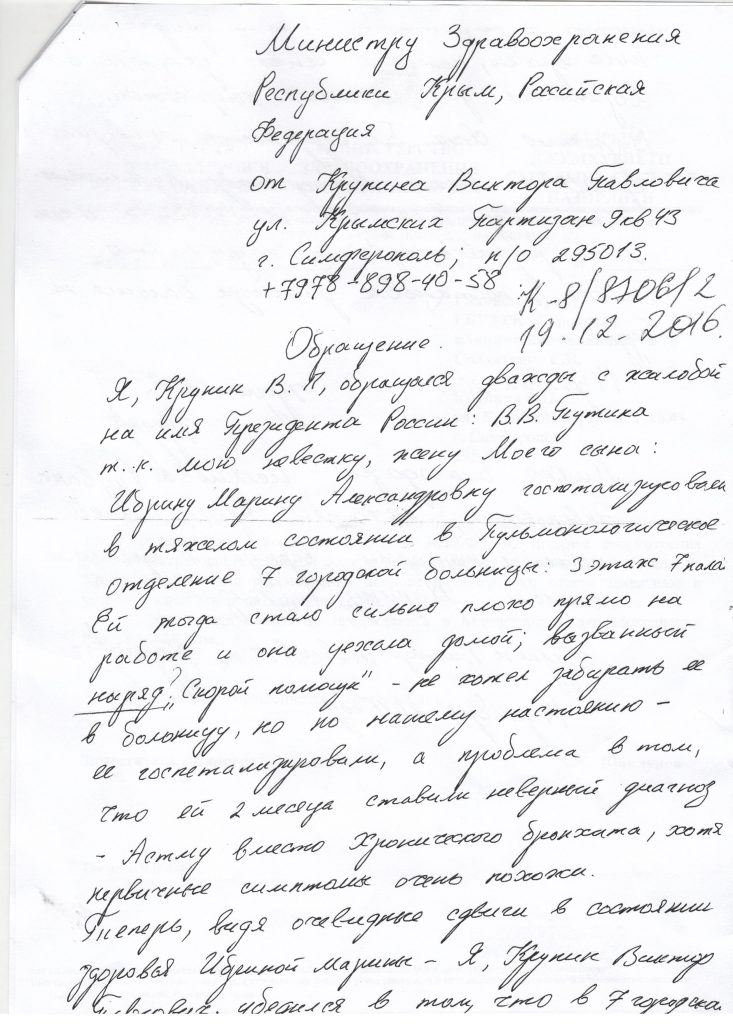 Министру Здравоохранения
Республики Крым, Российская
Федерация
от Крупина Виктора Павловича
ул. Крымских Партизан 9кв43
г. Симферополь; п/о 295013.
+7978-898-40-58
К-8/8706/2
19.12.2016.
Обращение.
Я, Крупин В. П, обращался дважды с жалобой
на имя Президента России: В.В. Путина
т.к. мою невестку, жену Моего сына:
Марину Александровну госпетализировали
в тяжелом состоянии в Пульмонологическое
отделение 7 городской больницы: 3 этаж 7 пала
Ей тогда стало сильно плохо прямо на
работе и она уехала домой; вызванный
наряд? "Скорой помощи" - не хотел забирать ее
в больницу, но по нашему настоянию -
ее госпетализировали, а проблема в том,
что ей 2 месеца ставили неверный диагноз
- Астму вместо Хронического бронхита, хотя
первичные симптомы очень похожи.
Теперь, видя очевидные сдвиги в состоянии
здоровья Марины - Я, Крупин Виктор
Павлович, убедился в том, что в 7 городской